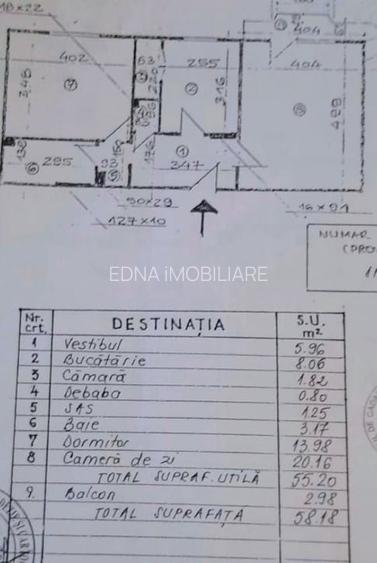 18x22
404
402
63
255
404
348
7
2
316
8
499
138
6
295
93
150
176
1
347
5
50x29
127x10
16x91
NUMAR
EDNA iMOBILIARE
Nr. crt. DESTINAȚIA S.U. m²
1 Vestibul 5.96
2 Bucătărie 8.06
3 Cămară 1.82
4 Debaba 0.80
5 SAS 1.25
6 Baie 3.17
7 Dormitor 13.98
8 Cameră de zi 20.16
TOTAL SUPRAF. UTILĂ 55.20
9. Balcon 2.98
TOTAL SUPRAFAȚA 58.18